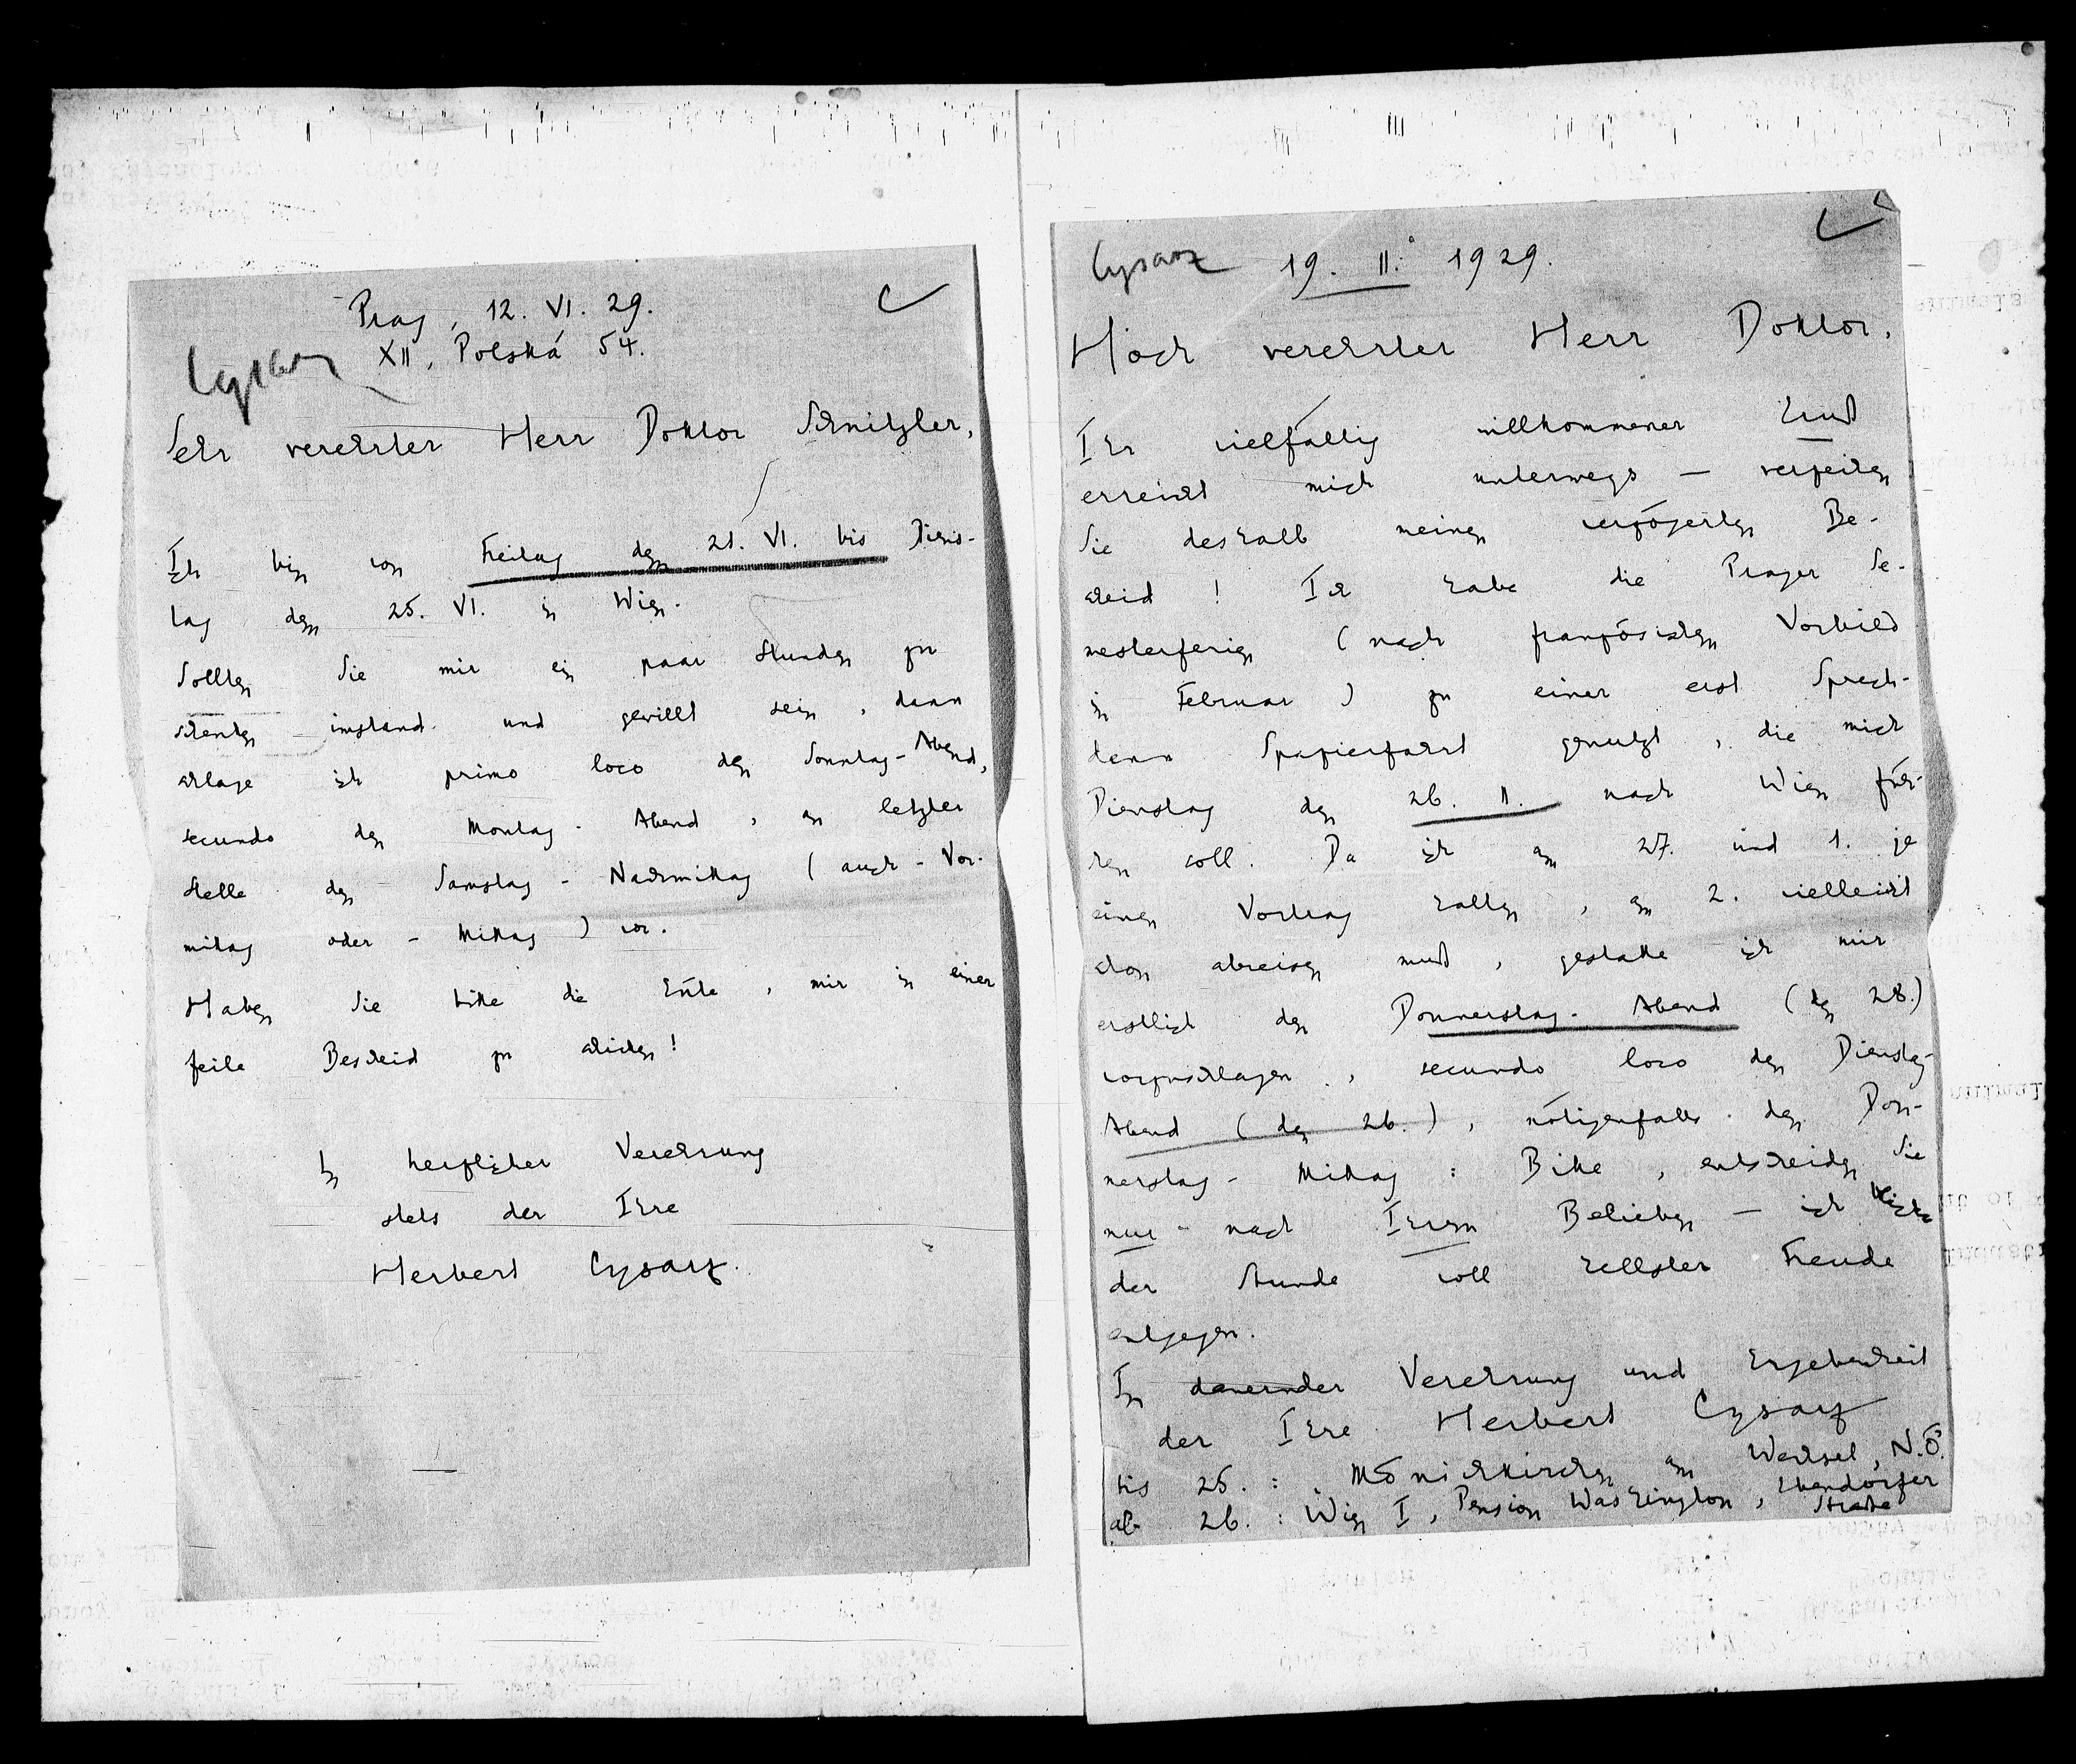 Prag, 12. VI. 29.
XII, Polská 54.
Cysarz
Sehr verehrter Herr Doktor Schnitzler,
Ich bin von Freitag den 21. VI. bis Diens-
tag den 25. VI. in Wien.
Sollten Sie mir ein paar Stunden zu
schenken imstand und gewillt sein, dann
schlage ich primo loco den Sonntag-Abend,
secundo den Montag-Abend, an letzter
Stelle den Samstag-Nachmittag (auch -Vor-
mittag oder -Mittag) vor.
Haben Sie bitte die Güte, mir in einer
Zeile Bescheid zu schicken!
In herzlicher Verehrung
stets der Ihre
Herbert Cysarz.
Cysarz 19. II. 1929.
Hoch verehrter Herr Doktor,
Ihr vielfältig willkommener Gruß
erreicht mich unterwegs – verzeihen
Sie deshalb meinen verzögerten Be-
scheid! Ich habe die Prager Se-
mesterferien (nach französischem Vorbild
im Februar) zu einer erst Sprech-
dann Spazierfahrt genutzt, die mich
Dienstag den 26. II. nach Wien füh-
ren soll. Da ich am 27. und 1. je
einen Vortrag halten, am 2. vielleicht
schon abreisen muß, gestatte ich mir
erstlich den Donnerstag-Abend (den 28.)
vorzuschlagen, secundo loco den Dienstag-
Abend (den 26.), nötigenfalls den Don-
nerstag-Mittag: Bitte, entscheiden Sie
nur nach Ihrem Belieben – ich blicke
der Stunde voll hellster Freude
entgegen.
In dauernder Verehrung und Ergebenheit
der Ihre Herbert Cysarz
bis 25.: Mönichkirchen am Wechsel, N.Ö.
ab 26.: Wien I, Pension Washington, Ebendorfer
Straße